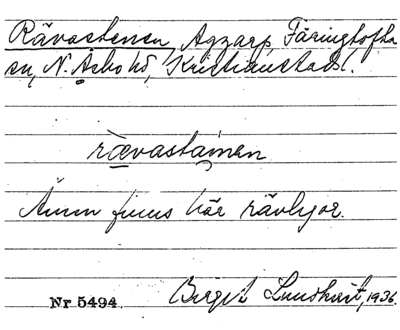 Rävastenen, Agzarp, Färingtofta
sn, N. Åsbo hd, Kristianstads l.
rævastainen
Ännu finns här rävlyor.
Nr 5494 Birgit Lundkvist, 1936.